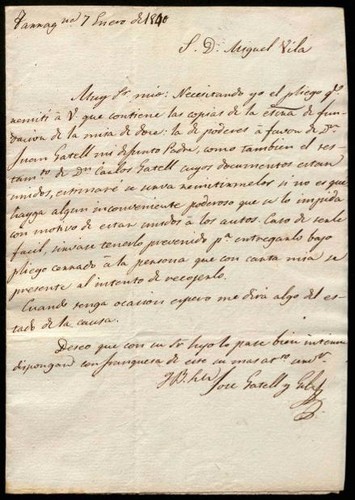 Tarragna 7 Enero de 1840
S. D. Miguel Vila
Muy Sr mio: Necesitando yo el pliego qe
remiti á V. que contiene las copias de la escra de fun-
dacion de la misa de doce: la de poderes á favor de Dn
Juan Gatell mi difunto Padre, como tambien el tes-
tamto de Dn Carlos Gatell cuyos documentos estan
unidos, estimaré se sirva remitirmelos si no es que
haya algun inconveniente poderoso que se lo impida
con motivo de estar unidos á los autos. Caso de serle
facil, sirvase tenerlo prevenido pa entregarlo bajo
pliego cerrado á la persona que con carta mia se
presente al intento de recojerlo.
Cuando tenga ocasion espero me dira algo del es-
tado de la causa.
Deseo que con su Sr hijo lo pase bien interin
dispongan con franqueza de este su mas atto
Jose Gatell y